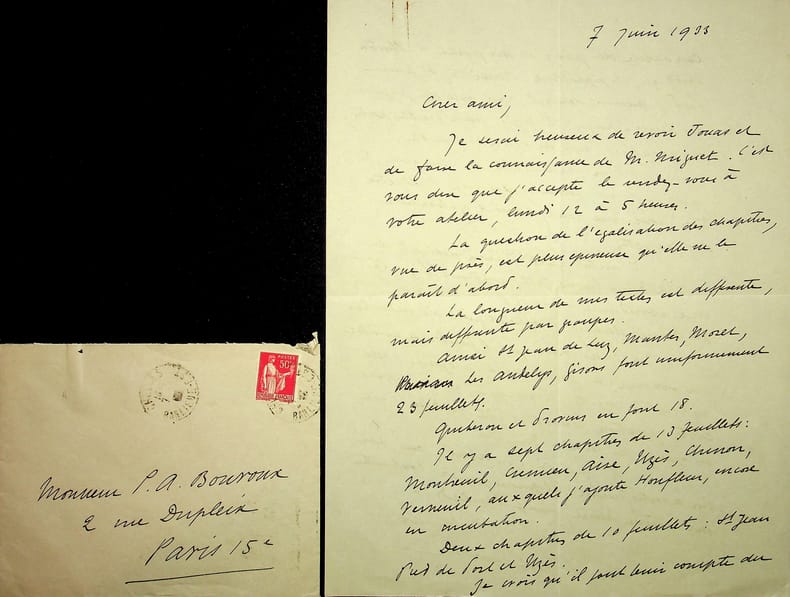 7 juin 1933
Cher ami,
Je serai heureux de revoir Jouas et
de faire la connaissance de M. Miguet. C'est
vous dire que j'accepte le rendez-vous à
votre atelier, lundi 12 à 5 heures.
La question de l'égalisation des chapitres,
vue de près, est plus épineuse qu'elle ne le
paraît d'abord.
La longueur de mes textes est différente,
mais différente par groupes.
Ainsi St Jean de Luz, Mantes, Moret,
Les Andelys, Gisors font uniformément
23 feuillets.
Quiberon et Provins en font 18.
Il y a sept chapitres de 13 feuillets:
Montreuil, Crémieu, Aise, Uzès, Chinon,
Verneuil, auxquels j'ajoute Honfleur, encore
en incubation.
Deux chapitres de 10 feuillets: St Jean
Pied de Port et Uzès.
Je crois qu'il faut tenir compte du
POSTES
50c
Monsieur P. A. Bouroux
2 rue Dupleix
Paris 15e